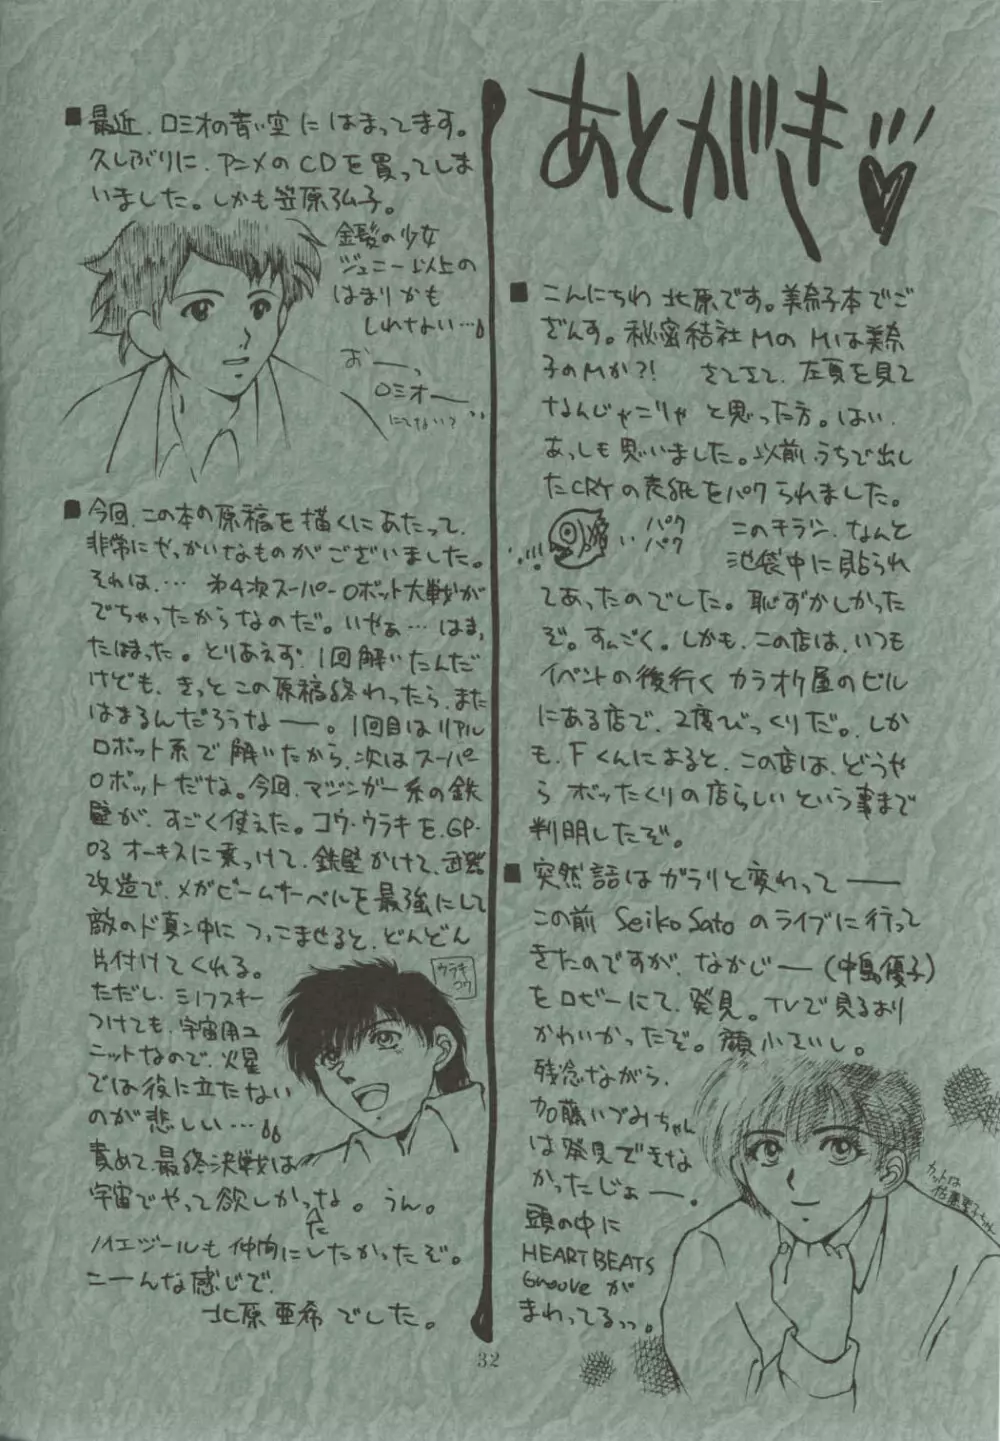 あとがき
■こんにちわ 北原です。美奈子本でご
ざんす。秘密結社MのMは美奈
子のMか?! さてさて、左頁を見て
なんじゃこりゃ と思った方。はい、
あっしも思いました。以前うちで出し
たCRYの表紙をパクられました。
パクパク
このチラシ、なんと
池袋中に貼られ
てあったのでした。恥ずかしかった
ぞ。すんごく。しかも、この店は、いつも
イベントの後行く カラオケ屋のビル
にある店で、2度びっくりだ。しか
も、Fくんによると、この店は、どうや
ら ボッたくりの店らしい という事まで
判明したぞ。
■突然話はガラリと変わって──
この前 Seiko Sato のライブに行って
きたのですが、なかじー(中島優子)
をロビーにて、発見。TVで見るより
かわいかったぞ。顔小さいし。
残念ながら、
加藤いづみちゃん
は発見できな
かったじょー。
頭の中に
HEART BEATS
Grooveが
まわってるっっ。
カットは
佐藤聖子ちゃん
■最近、ロミオの青い空にはまってます。
久しぶりに、アニメのCDを買ってしま
いました。しかも笠原弘子。
金髪の少女
ジェニー以上の
はまりかも
しれない…
おーっ
ロミオー
にてない?
■今回、この本の原稿を描くにあたって、
非常にやっかいなものがございました。
それは、… 第4次スーパーロボット大戦が
でちゃったからなのだ。いやぁ…はま、
たはまった。とりあえず、1回解いたんだ
けども、きっとこの原稿終わったら、また
はまるんだろうなー。1回目はリアル
ロボット系で解いたから、次はスーパー
ロボットだな。今回、マジンガー系の鉄
壁が、すごく使えた。コウ・ウラキを、GP-
03 オーキスに乗っけて、鉄壁かけて、武器
改造で、メガビームサーベルを最強にして
敵のド真ン中に つっこませると、どんどん
片付けてくれる。
ただし、ミノフスキー
つけても、宇宙用ユ
ニットなので、火星
では役に立たない
のが悲しい…
責めて、最終決戦は
宇宙でやって欲しかっな。うん。
た
ノイエジールも仲間にしたかったぞ。
こーんな感じで、
北原亜希でした。
ウラキ
コウ
32